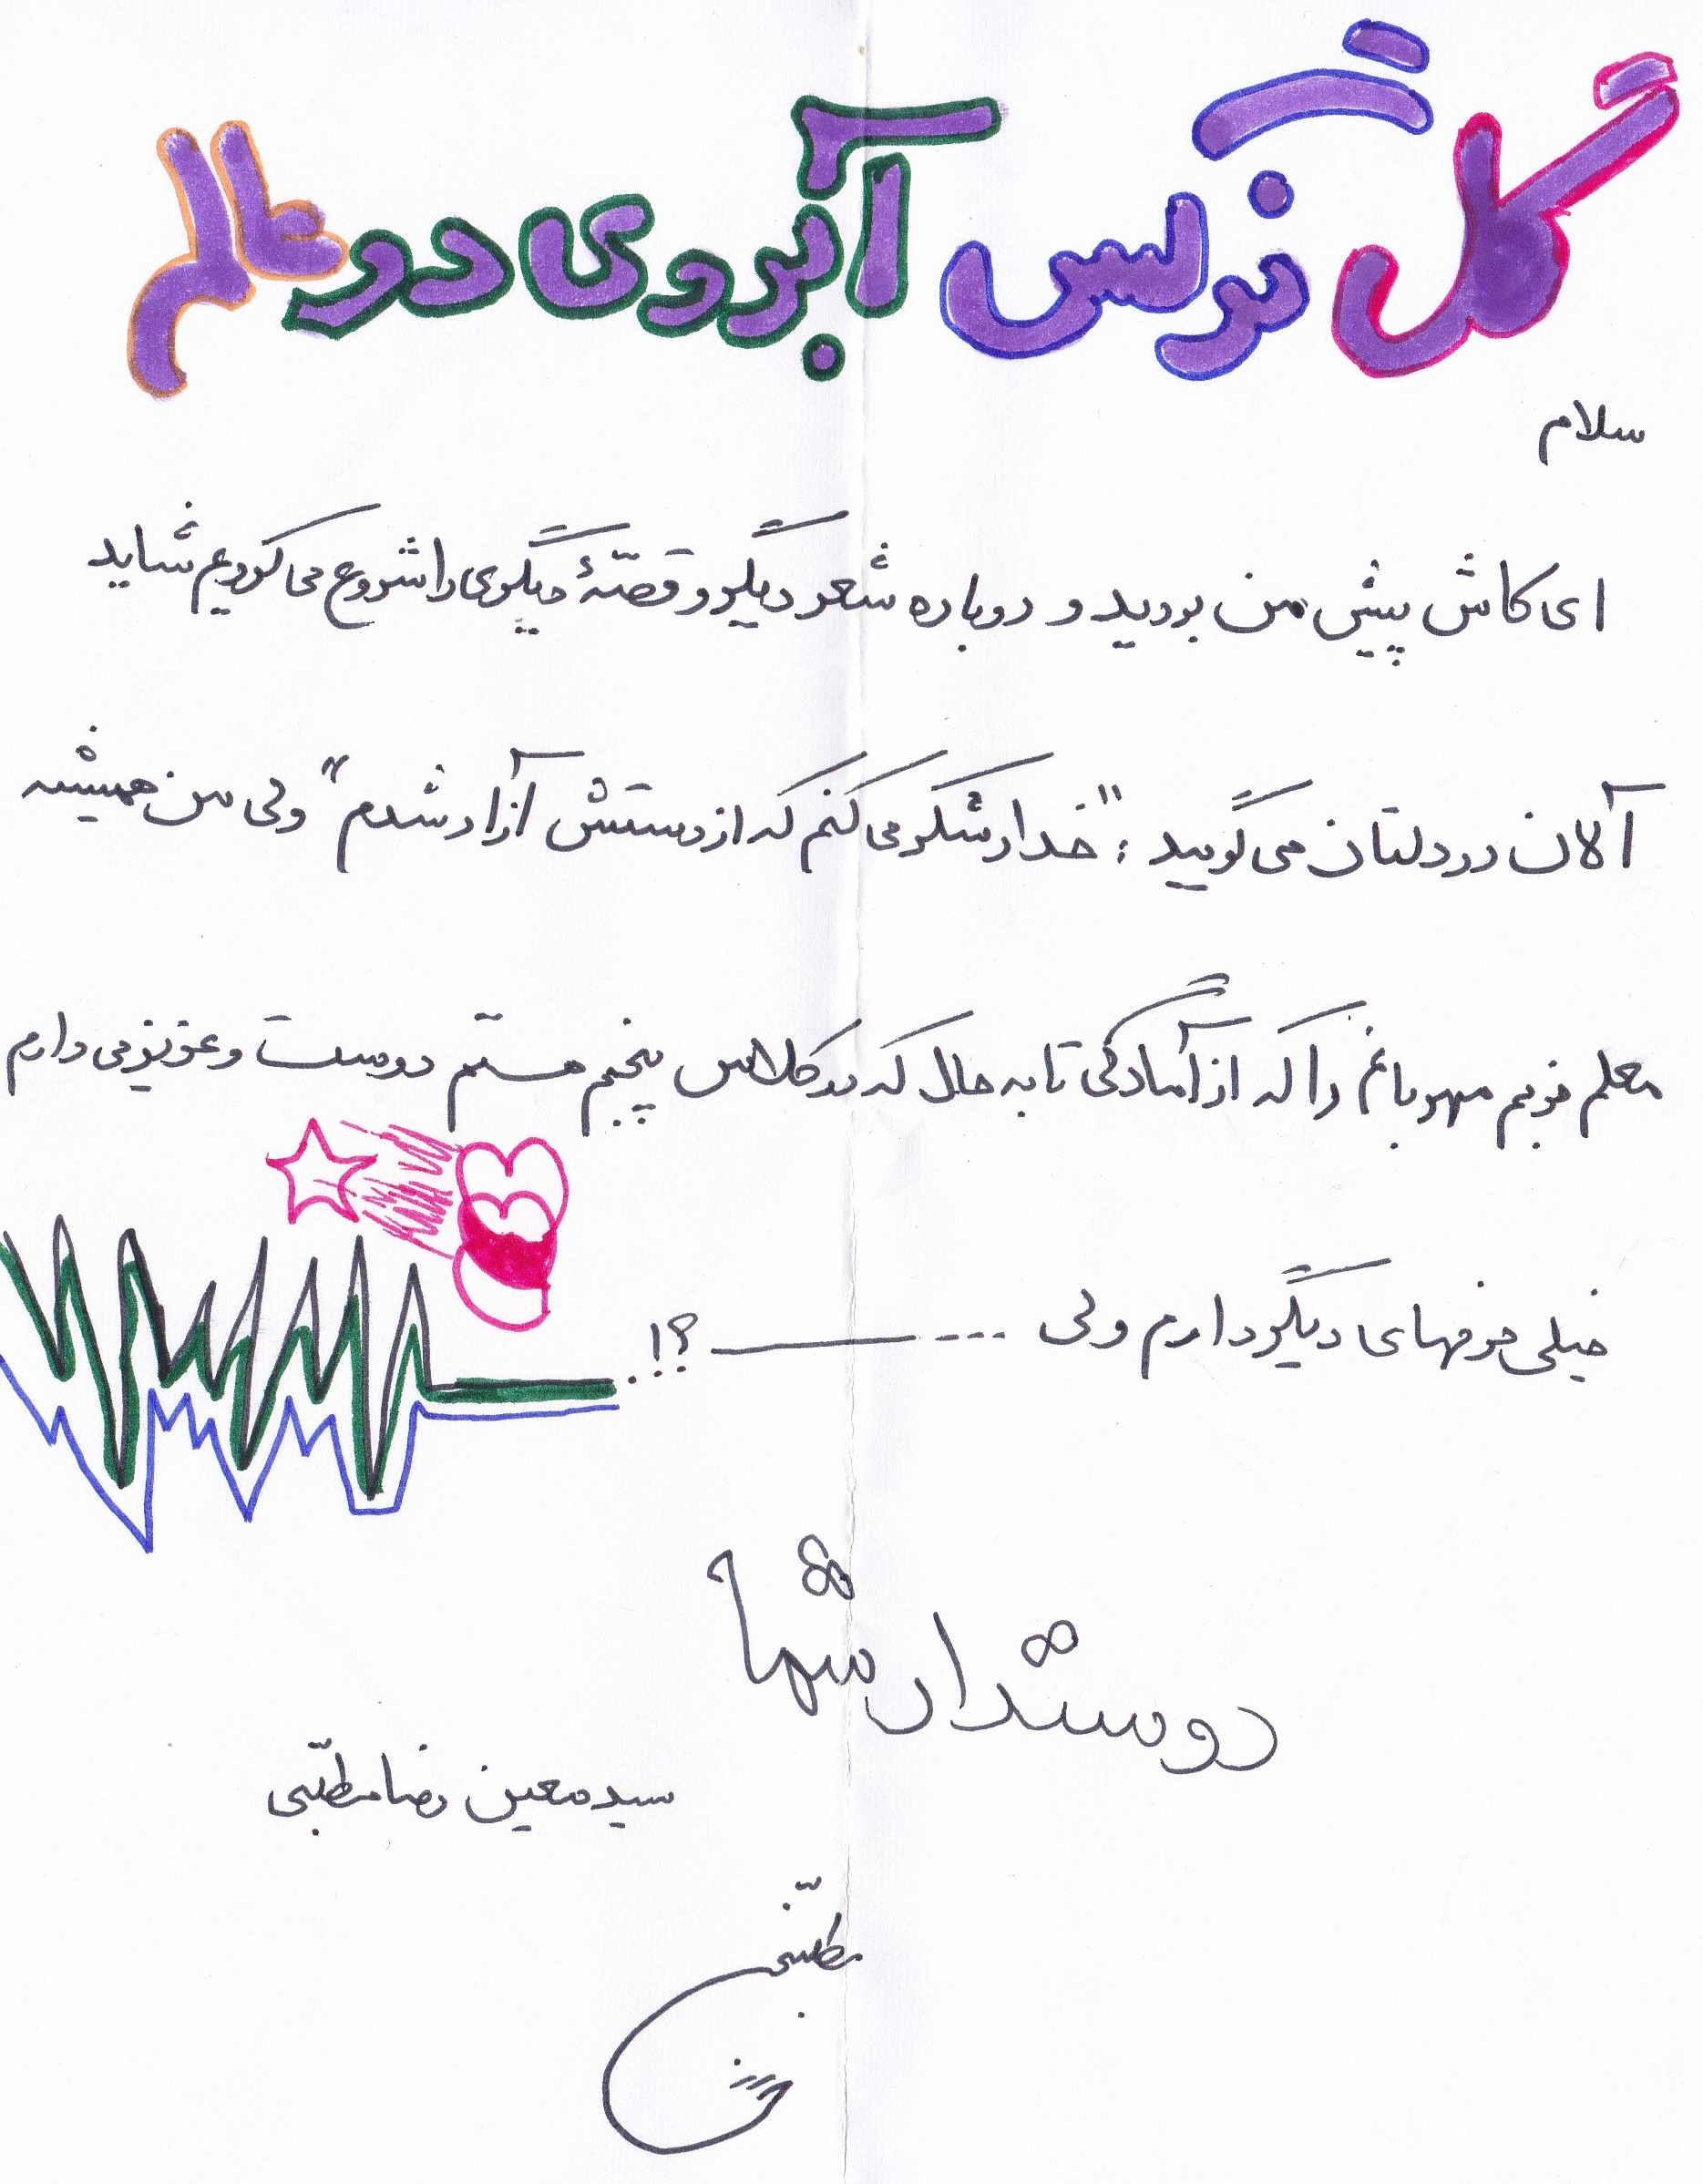 گل نرگس آبروی دو عالم
سلام
ای کاش پیش من بودید و دوباره شعر دیگر و قصّهٔ دیگری را شروع می کردیم شاید
آلان در دلتان می گویید : "خدارشکر می کنم که از دستش آزاد شدم" ولی من همیشه
معلم خوبم مهربانم را که از آمادگی تا به حال که در کلاس پنجم هستم دوست و عزیز می دارم
خیلی حرفهای دیگر دارم ولی --- ——— ؟!.
دوستدار شما
سید معین رضا مطلّبی
مطلّبی